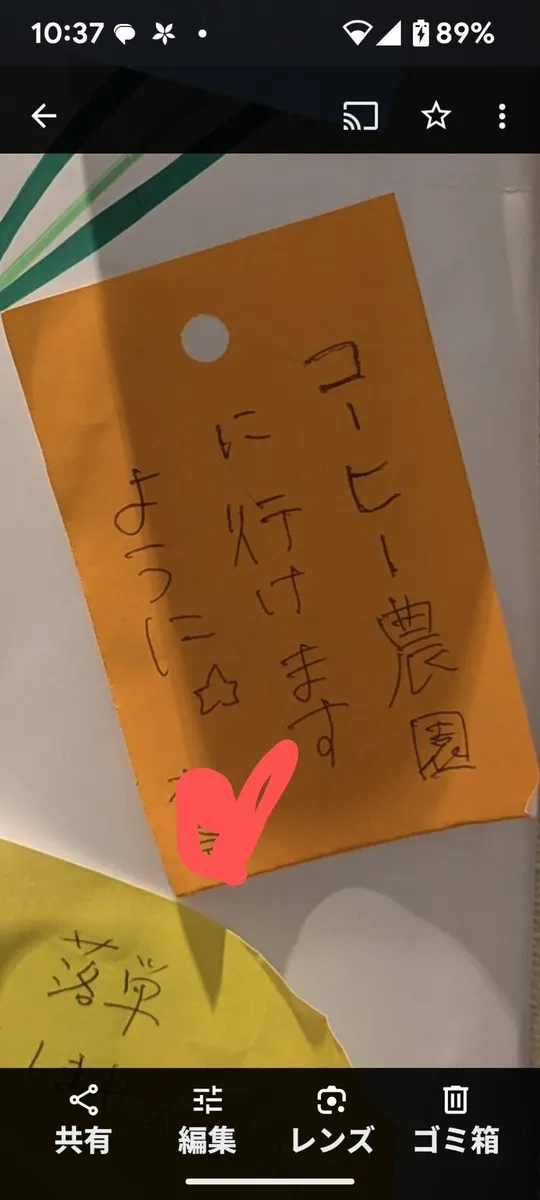 10:37
89%
コーヒー農園
に行けます
ように☆
落単
しません
共有
編集
レンズ
ゴミ箱